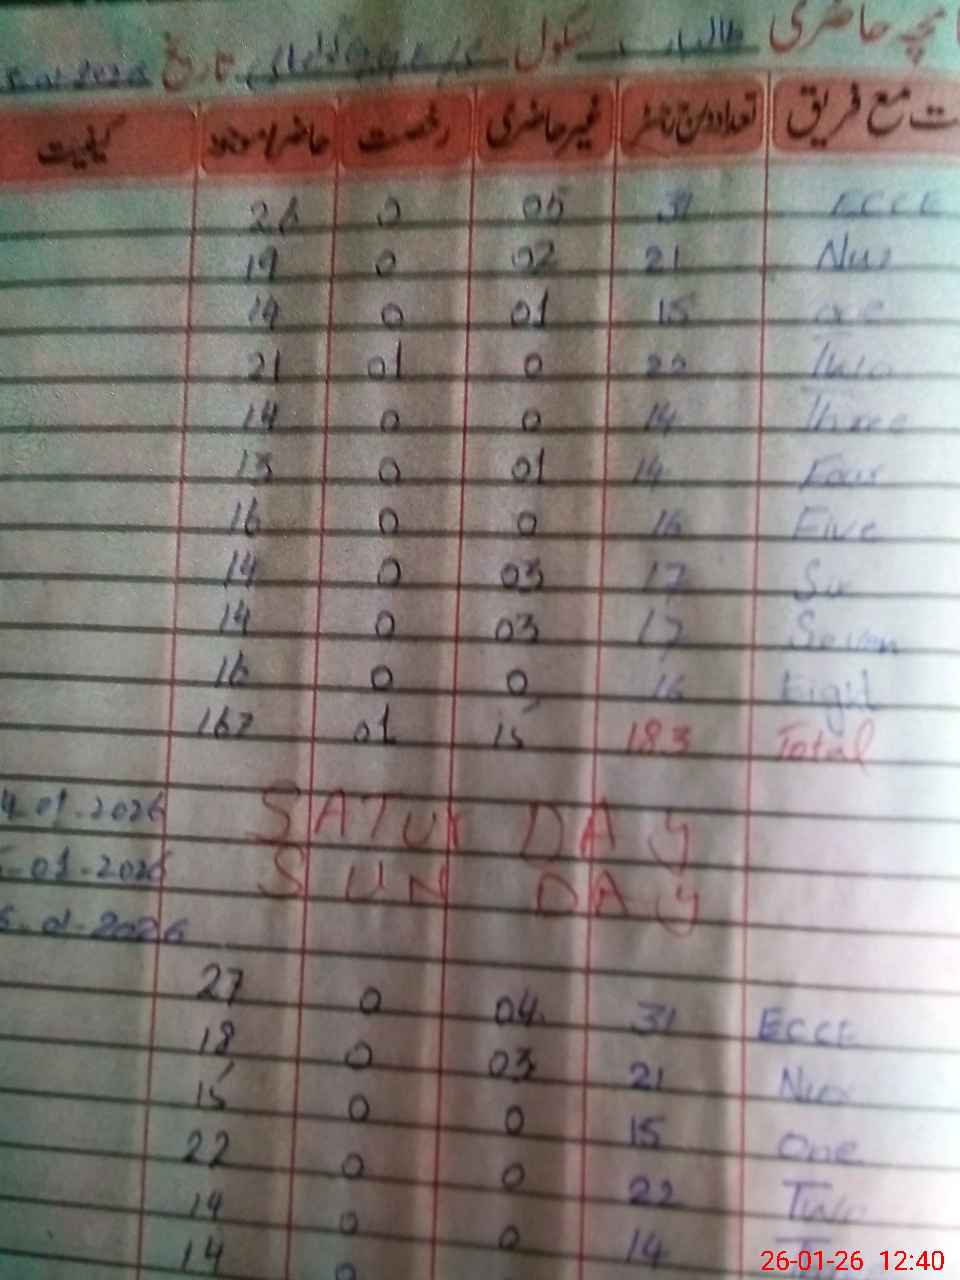 حاضری طالبات سکول تاریخ
ت مع فریق تعداد غیر حاضری رخصت حاضر/موجود کیفیت
ECCE 31 05 0
Nur 21 02 0 19
one 15 01 0 14
Two 22 0 01 21
Three 14 0 0 14
Four 14 01 0 13
Five 16 0 0 16
Six 17 03 0 14
Seven 17 03 0 14
Eight 16 0 0 16
Total 183 15 01 167
SATURDAY 01-2026
SUNDAY -01-2026
01-2026
ECCE 31 04 0 27
Nur 21 03 0 18
One 15 0 0 15
Two 22 0 0 22
14 0 0 14
0 14
26-01-26 12:40